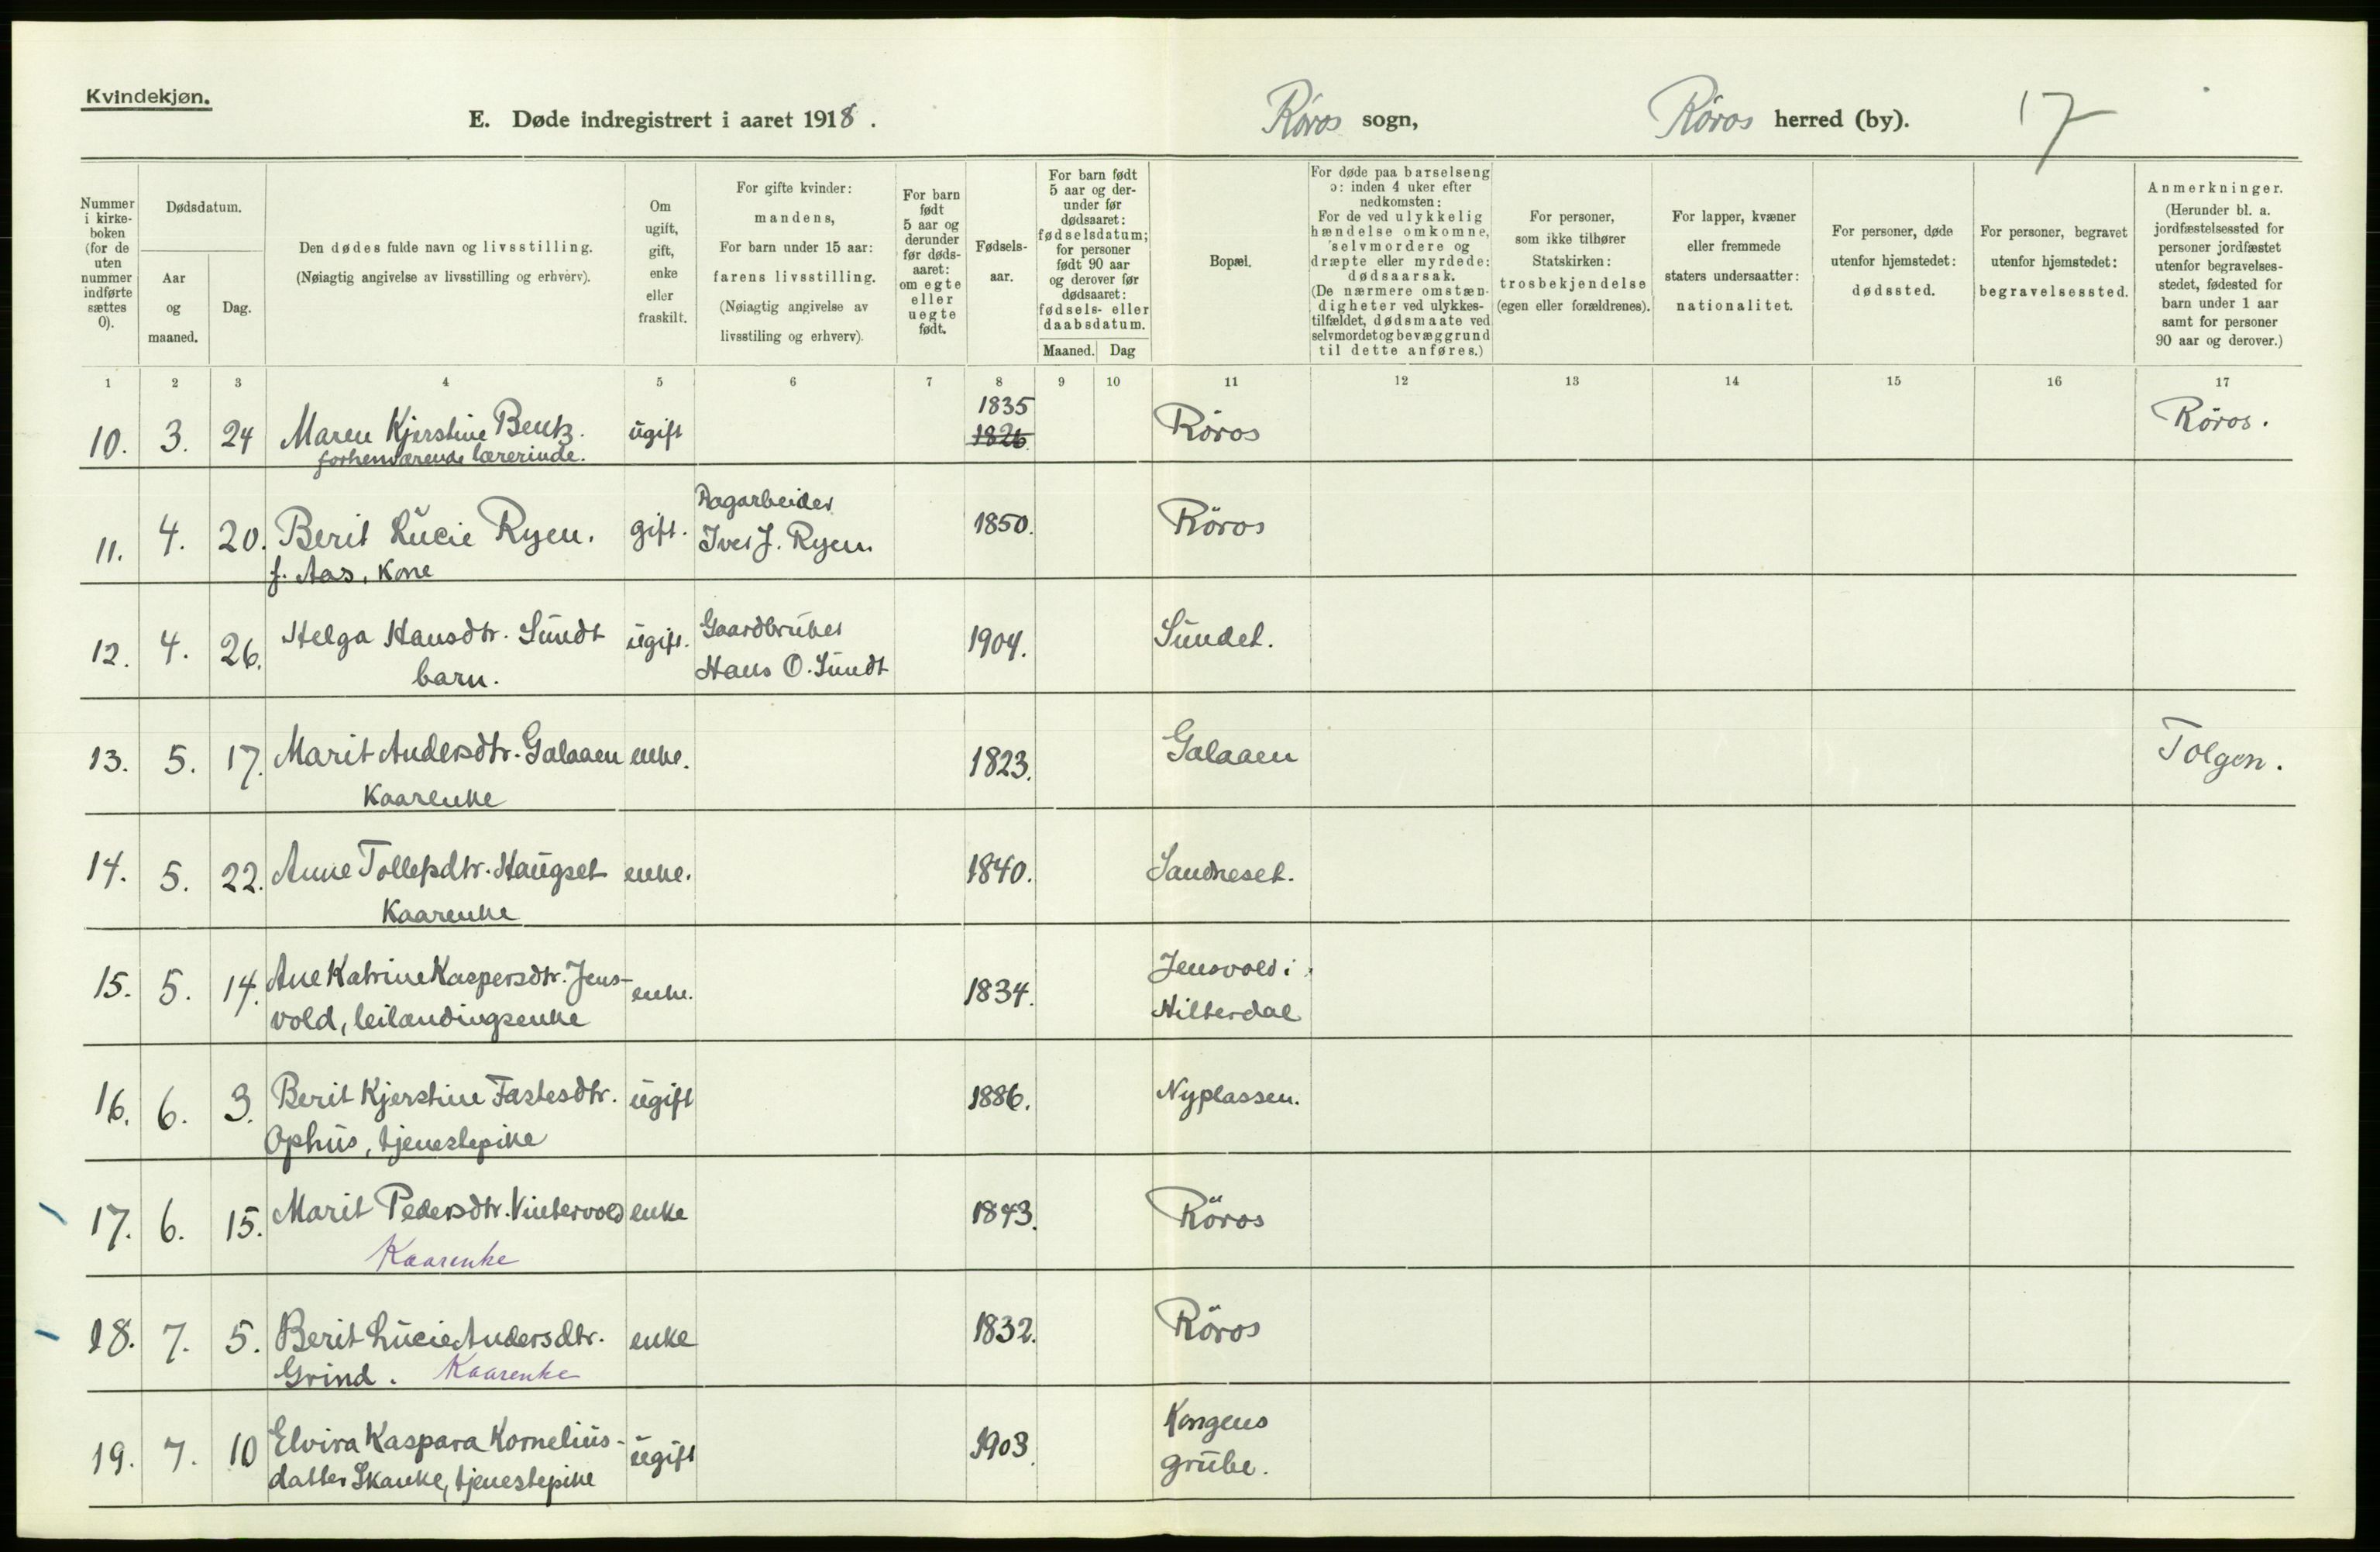 Kvindekjøn.
E. Døde indregistrert i aaret 1918. Röros sogn, Röros herred (by). 17
Nummer i kirke-boken (for de uten nummer indførte sættes 0).
Dødsdatum.
Aar og maaned.
Dag.
Den dødes fulde navn og livsstilling.
(Nøiagtig angivelse av livsstilling og erhverv).
Om ugift, gift, enke eller fraskilt.
For gifte kvinder: mandens,
For barn under 15 aar: farens livsstilling.
(Nøiagtig angivelse av livsstiling og erhverv).
For barn født 5 aar og derunder før døds-aaret: om egte eller uegte født.
Fødsels-aar.
For barn født 5 aar og der-under før dødsaaret: fødselsdatum; for personer født 90 aar og derover før dødsaaret: fødsels- eller daabsdatum.
Maaned. Dag
Bopæl.
For døde paa barselseng ɔ: inden 4 uker efter nedkomsten:
For de ved ulykkelig hændelse omkomne, selvmordere og dræpte eller myrdede: dødsaarsak.
(De nærmere omstæn-digheter ved ulykkes-tilfældet, dødsmaate ved selvmordet og bevæggrund til dette anføres.)
For personer, som ikke tilhører Statskirken: trosbekjendelse (egen eller forældrenes).
For lapper, kvæner eller fremmede staters undersaatter: nationalitet.
For personer, døde utenfor hjemstedet: dødssted.
For personer, begravet utenfor hjemstedet: begravelsessted.
Anmerkninger.
(Herunder bl. a. jordfæstelsessted for personer jordfæstet utenfor begravelses-stedet, fødested for barn under 1 aar samt for personer 90 aar og derover.)
1 2 3 4 5 6 7 8 9 10 11 12 13 14 15 16 17
1835
10. 3. 24 Maren Kjerstine Bentz. ugift 1826. Röros Röros.
forhenværende lærerinde.
Ragarbeider
11. 4. 20. Berit Lucie Ryen. gift. Iver J. Ryen. 1850. Röros
f. Aas, Kone
12. 4. 26. Helga Hansdtr. Sundt ugift. Gaardbruker 1904. Sundet.
barn. Hans O. Sundt
13. 5. 17. Marit Andersdtr. Galaaen enke. 1823. Galaaen Tolgen.
Kaarenke
14. 5. 22. Anne Tollefsdtr. Haugset enke. 1840. Sandneset.
Kaarenke
15. 5. 14. Ane Katrine Kaspersdtr. Jens- enke. 1834. Jensvold i
vold, leilændingsenke Hitterdal
16. 6. 3. Berit Kjerstine Fastesdtr. ugift 1886. Nyplassen.
Ophus, tjenestepike
17. 6. 15. Marit Pedersdtr. Vintervold enke 1843. Röros
Kaarenke
18. 7. 5. Berit Lucie Andersdtr. enke 1832. Röros
Grind. Kaarenke
19. 7. 10 Elvira Kaspara Kornelius- ugift 1903. Kongens
datter Skanke, tjenestepike grube.